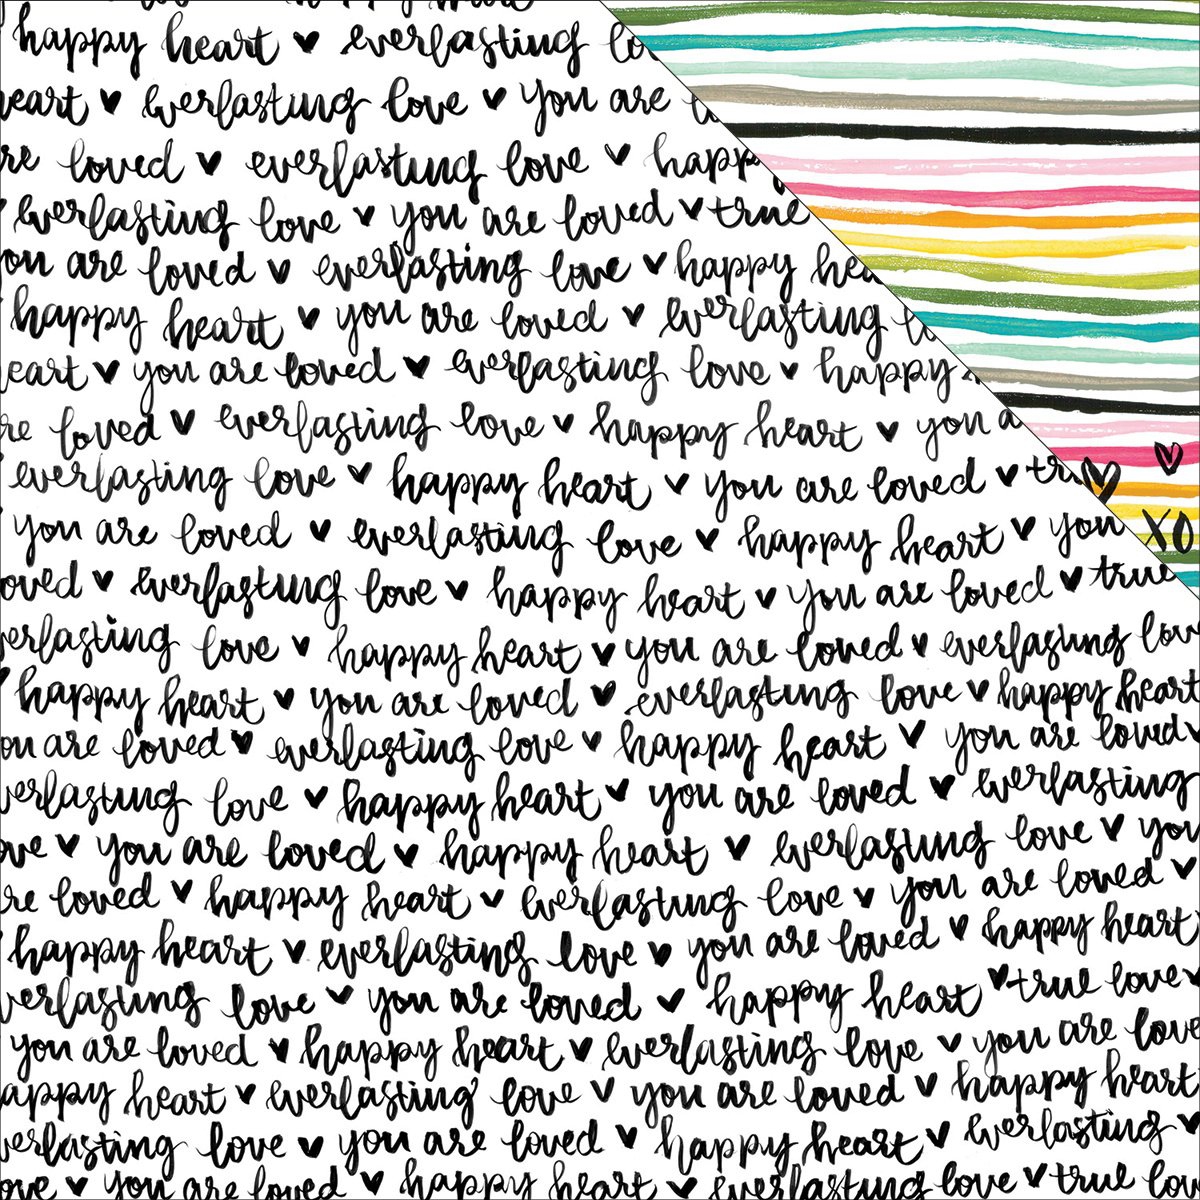 happy heart ♥ everlasting
heart ♥ everlasting love ♥ you are
loved ♥ everlasting love ♥ happy
everlasting love ♥ you are loved ♥ true
you are loved ♥ everlasting love ♥ happy
happy heart ♥ you are loved ♥ everlasting
heart ♥ you are loved ♥ everlasting love ♥ happy
loved ♥ everlasting love ♥ happy heart ♥ you
everlasting love ♥ happy heart ♥ you are loved ♥
you are loved ♥ everlasting love ♥ happy heart ♥ you
XO
loved ♥ everlasting love ♥ happy heart ♥ you are loved ♥ true
everlasting love ♥ happy heart ♥ you are loved ♥ everlasting love
happy heart ♥ you are loved ♥ everlasting love ♥ happy heart
you are loved ♥ everlasting love ♥ happy heart ♥ you are loved ♥
everlasting love ♥ happy heart ♥ you are loved ♥ everlasting
love ♥ you are loved ♥ happy heart ♥ everlasting love ♥ you
loved ♥ happy heart ♥ everlasting love ♥ you are loved ♥
happy heart ♥ everlasting love ♥ you are loved ♥ happy heart
everlasting love ♥ you are loved ♥ happy heart ♥ true love ♥
you are loved ♥ happy heart ♥ everlasting love ♥ you are love
happy heart ♥ everlasting love ♥ you are loved ♥ happy heart
everlasting love ♥ you are loved ♥ happy heart ♥ everlasting ♥
love ♥ you are loved ♥ happy heart ♥ everlasting love ♥ true